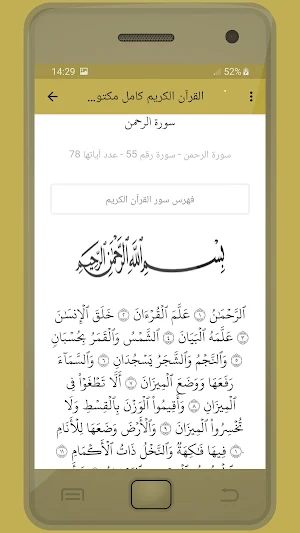 14:29 52%
القرآن الكريم كامل مكتو...
سورة الرحمن
سورة الرحمن - سورة رقم 55 - عدد آياتها 78
فهرس سور القرآن الكريم
بِسْمِ اللَّهِ الرَّحْمَٰنِ الرَّحِيمِ
الرَّحْمَـٰنُ ﴿١﴾ عَلَّمَ الْقُرْءَانَ ﴿٢﴾ خَلَقَ الْإِنسَـٰنَ
﴿٣﴾ عَلَّمَهُ الْبَيَانَ ﴿٤﴾ الشَّمْسُ وَالْقَمَرُ بِحُسْبَانٍ
﴿٥﴾ وَالنَّجْمُ وَالشَّجَرُ يَسْجُدَانِ ﴿٦﴾ وَالسَّمَآءَ
رَفَعَهَا وَوَضَعَ الْمِيزَانَ ﴿٧﴾ أَلَّا تَطْغَوْا۟ فِى
الْمِيزَانِ ﴿٨﴾ وَأَقِيمُوا۟ الْوَزْنَ بِالْقِسْطِ وَلَا
تُخْسِرُوا۟ الْمِيزَانَ ﴿٩﴾ وَالْأَرْضَ وَضَعَهَا لِلْأَنَامِ
﴿١٠﴾ فِيهَا فَـٰكِهَةٌ وَالنَّخْلُ ذَاتُ الْأَكْمَامِ ﴿١١﴾